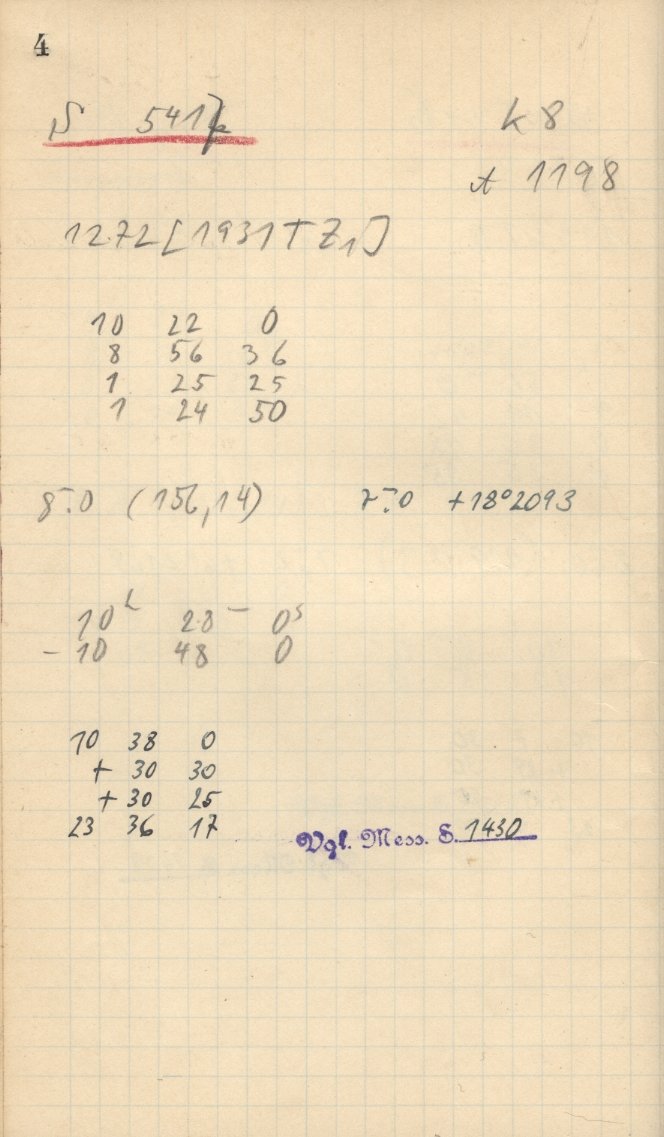 4
S 5417
k 8
A 1198
1272 [1931 T Z₁]
10 22 0
8 56 36
1 25 25
1 24 50
8ᵐ.0 (156,14) 7ᵐ.0 +18°2093
10ʰ 28ᵐ 0ˢ
- 10 48 0
10 38 0
+ 30 30
+ 30 25
23 36 17
Vgl. Mess. S. 1430